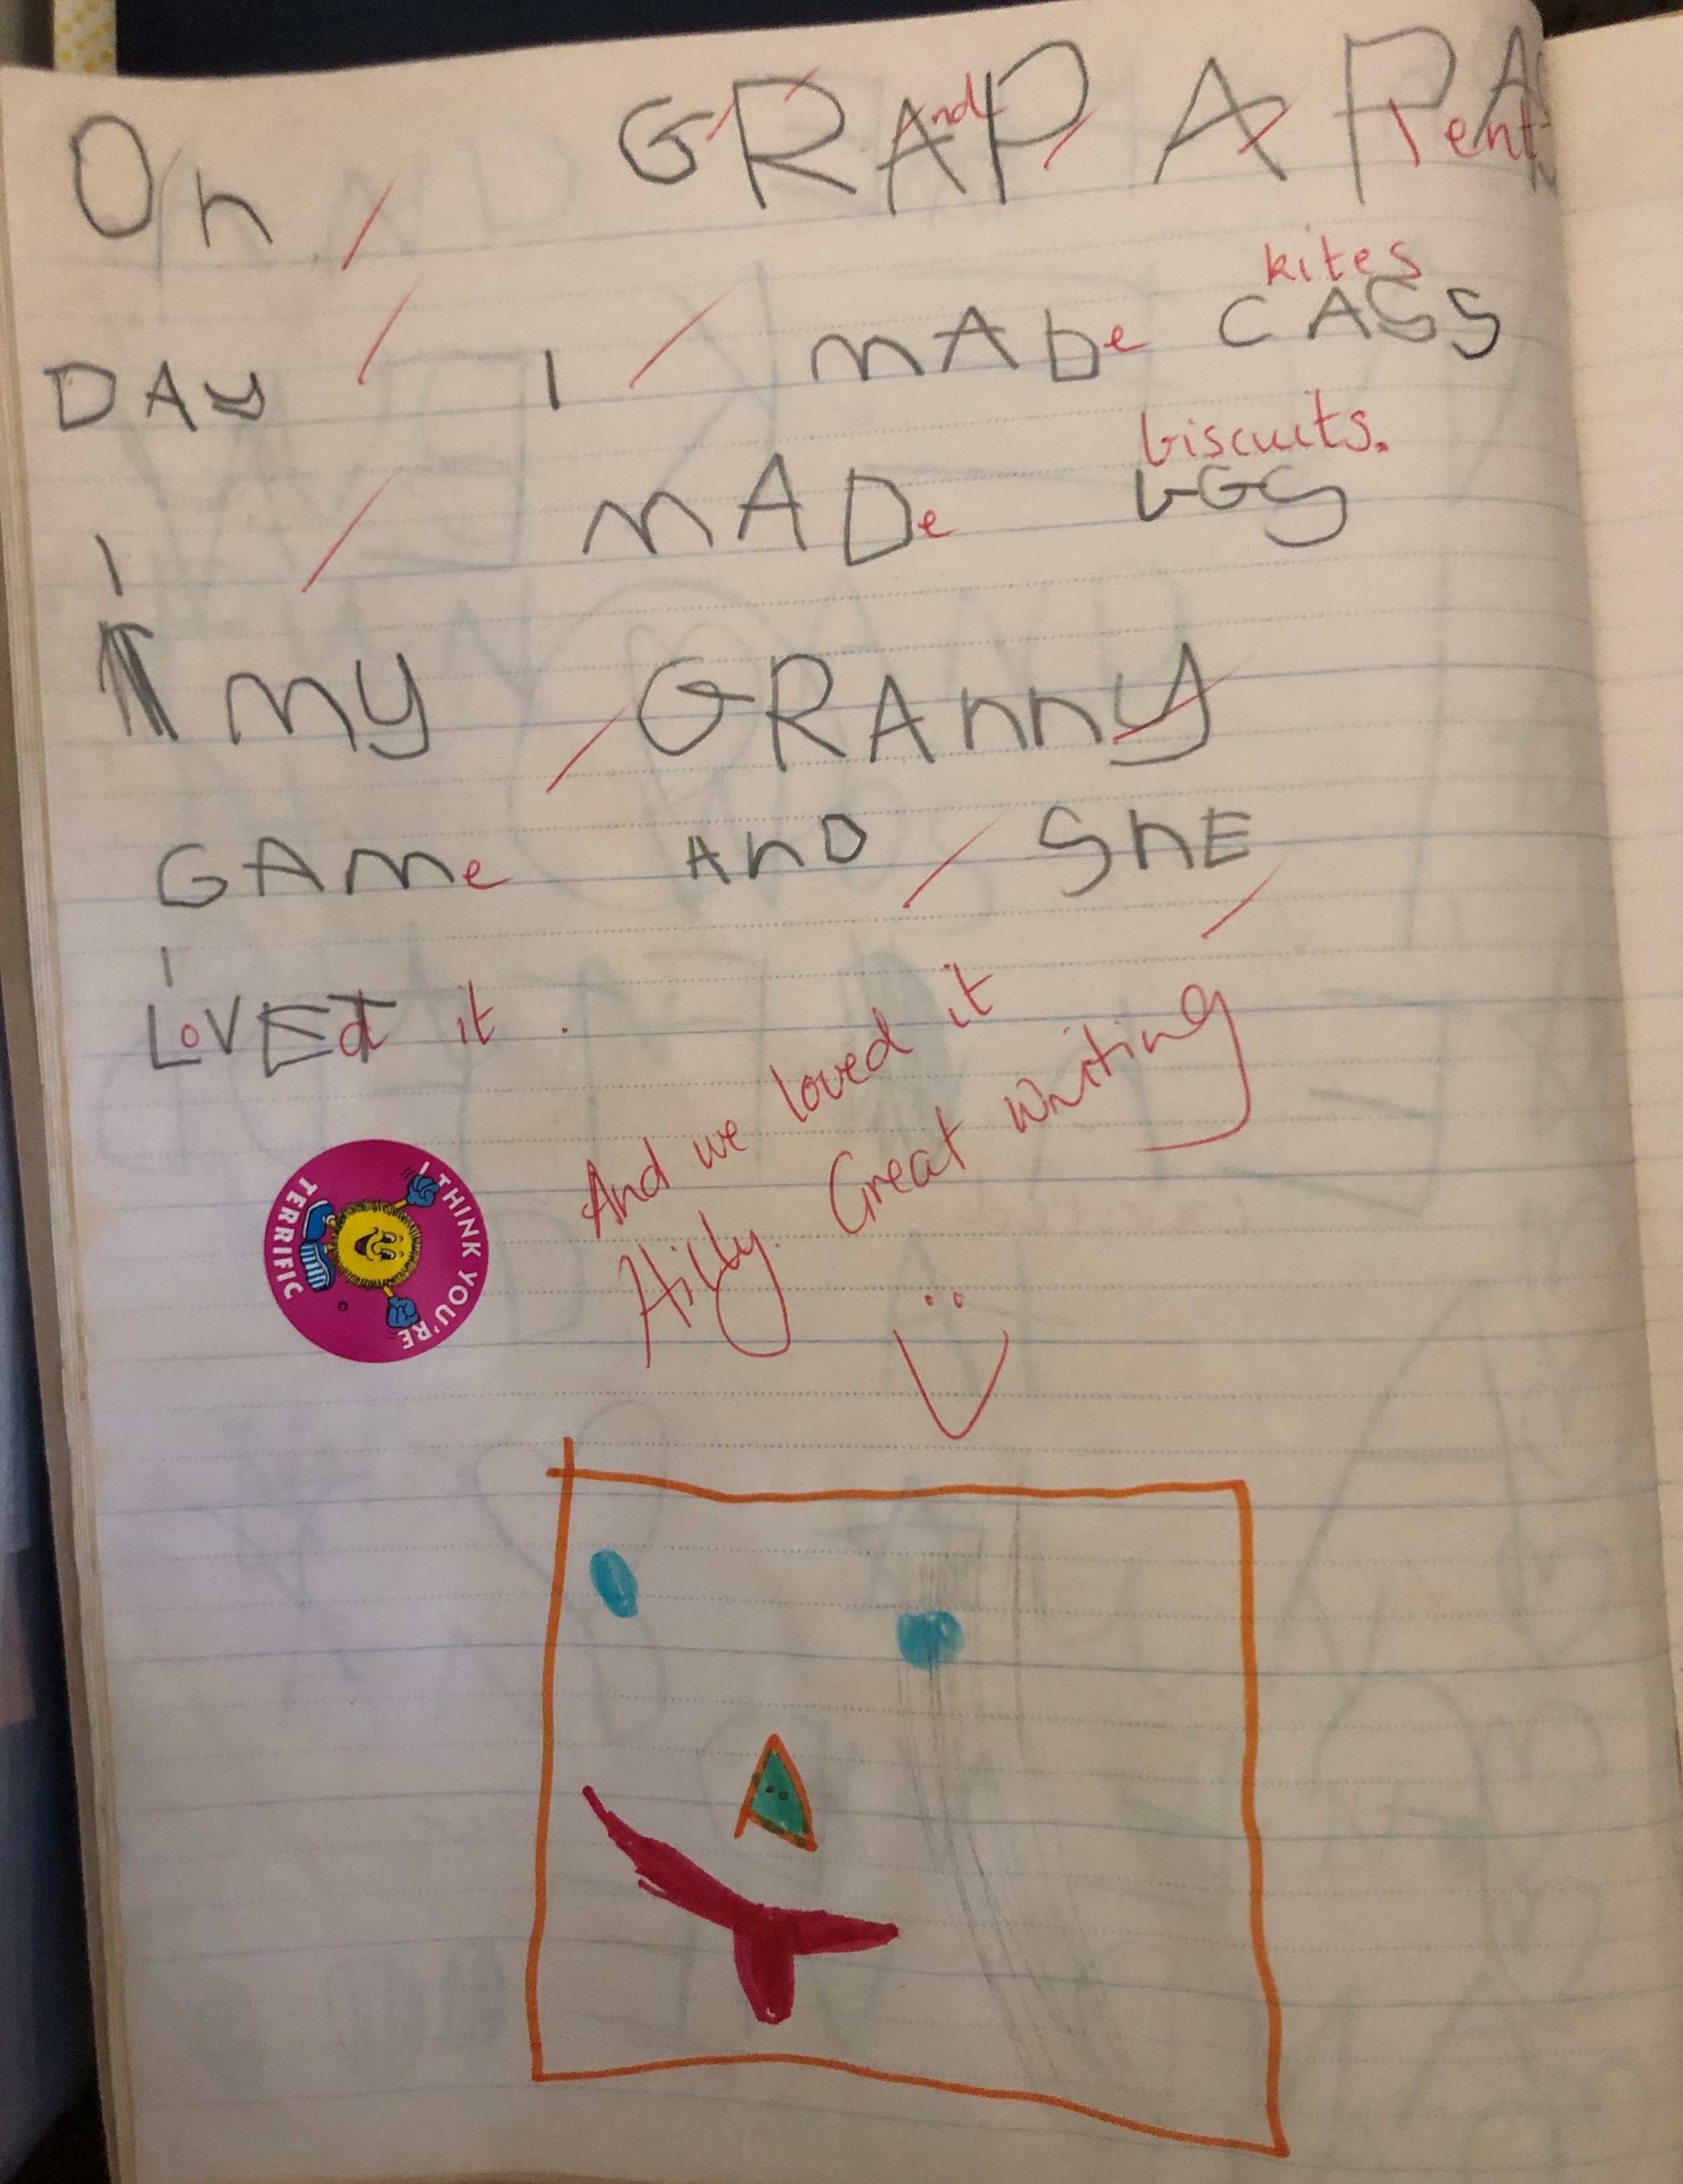 On GRAndP A PAent
kites
DAY I MADe CASS
biscuits.
I MADe bGS
MY GRAnny
GAMe AnD ShE
LoVEd it.
And we loved it
Hilly. Great Writing
I THINK YOU'RE
TERRIFIC